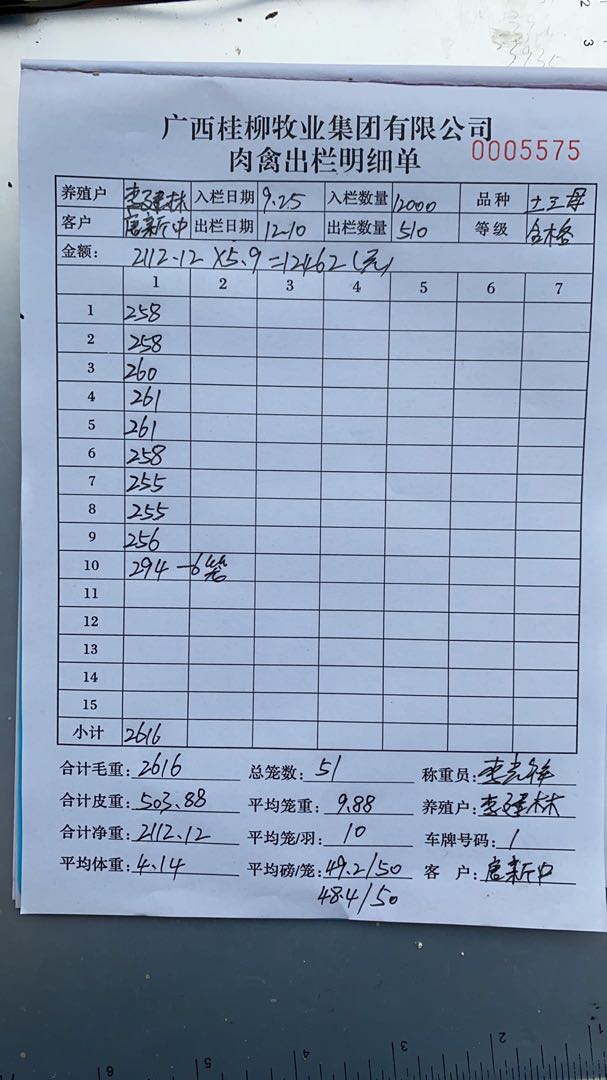 广西桂柳牧业集团有限公司
肉禽出栏明细单 0005575
养殖户 李建林 入栏日期 9.25 入栏数量 12000 品种 土王母
客户 唐新中 出栏日期 12.10 出栏数量 510 等级 合格
金额: 2112.12×5.9=12462(元)
1 2 3 4 5 6 7
1 258
2 258
3 260
4 261
5 261
6 258
7 255
8 255
9 256
10 294 -6笼
11
12
13
14
15
小计 2616
合计毛重: 2616 总笼数: 51 称重员:
合计皮重: 503.88 平均笼重: 9.88 养殖户: 李建林
合计净重: 2112.12 平均笼/羽: 10 车牌号码: /
平均体重: 4.14 平均磅/笼: 49.2/50 客 户: 唐新中
48.4/50
6 5 4 3 2 1
2
3